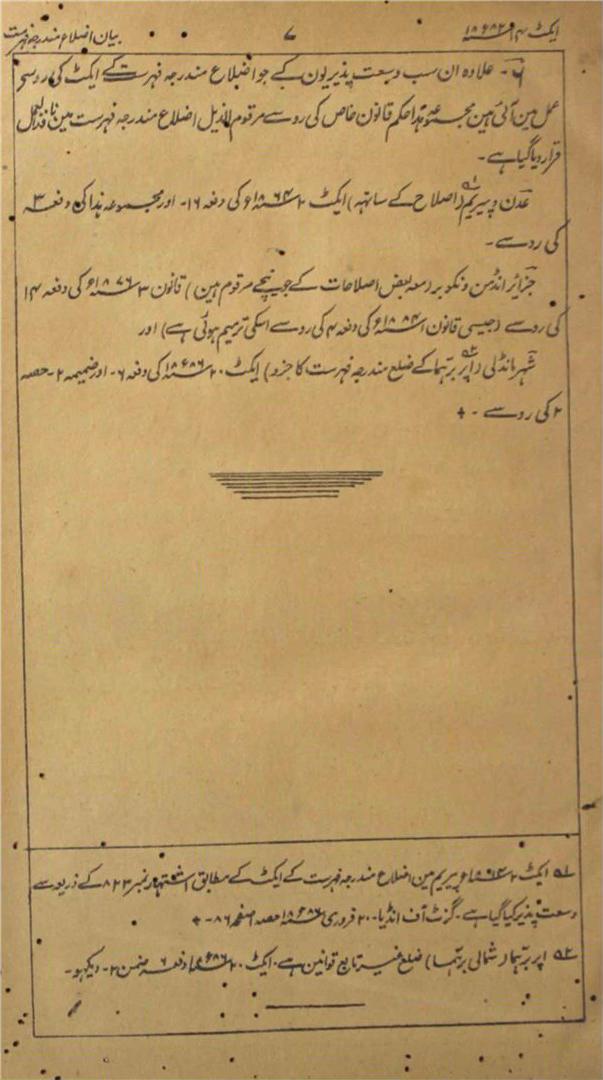 ایکٹ ۱۴ ۱۸۸۲ء ۷ بیان اضلاع مندرجہ فہرست
۶ - علاوہ ان سب وسعت پذیریون کے جو اضلاع مندرجہ فہرست کے ایکٹ کی روسے
عمل مین آئی ہین مجموعہ ہذا حکم قانون خاص کی روسے مرقوم الذیل اضلاع مندرجہ فہرست مین نافذ العمل
قرار دیا گیا ہے -
عدن و پیریم (۵۱ اصلاح کے ساتھہ) ایکٹ ۲ ۱۸۶۴ء کی دفعہ ۱۶ - اور مجموعہ ہذا کی دفعہ ۳
کی روسے -
جزائر انڈمن و نکوبر (معہ بعض اصلاحات کے جو نیچے مرقوم ہین) قانون ۳ ۱۸۷۶ء کی دفعہ ۱۴
کی روسے (جیسی قانون ۱ ۱۸۸۴ء کی دفعہ ۴ کی روسے اسکی ترمیم ہوئی ہے) اور
شہر مانڈلی (اپر برہما ۵۲ کے ضلع مندرجہ فہرست کا جزو) ایکٹ ۲۰ ۱۸۸۶ء کی دفعہ ۶ - اور ضمیمہ ۲ - حصہ
۲ کی روسے - +
۵۱ ایکٹ ۱۴ پیریم مین اضلاع مندرجہ فہرست کے ایکٹ کے مطابق اشتہار نمبر ۸۲۳ کے ذریعہ سے
وسعت پذیر کیا گیا ہے - گزٹ آف انڈیا - ۲۰ فروری ۱۸۸۶ء حصہ ۱ صفحہ ۸۶ - +
۵۲ اپر برہما (شمالی برہما) ضلع غیر تابع قوانین ہے - ایکٹ ۲۰ ۱۸۸۶ء دفعہ ۶ ضمن ۲ - دیکہو -